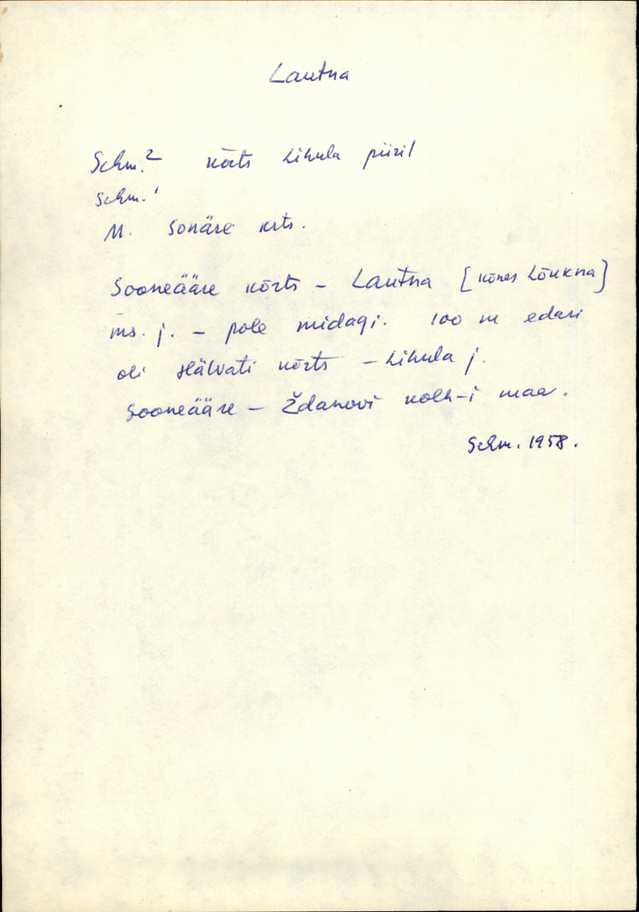 Lautna
Schm.² kõrts Lihula piiril
Schm.¹
M. Sonäre krts.
Sooneääre kõrts – Lautna [kõnes Lõukna]
ms. j. – pole midagi. 100 m edasi
oli Hälvati kõrts – Lihula j.
Sooneääre – Ždanovi kolh-i maa.
Schm. 1958.